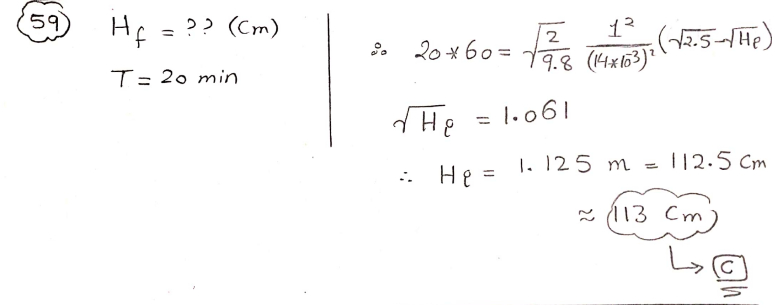 59 H_f = ?? (Cm)
T = 20 min
∴ 20*60 = √(2/9.8) 1²/(14*10⁻³)² (√2.5 - √Hf)
√Hf = 1.061
∴ Hf = 1.125 m = 112.5 Cm
≈ 113 Cm
↳ C